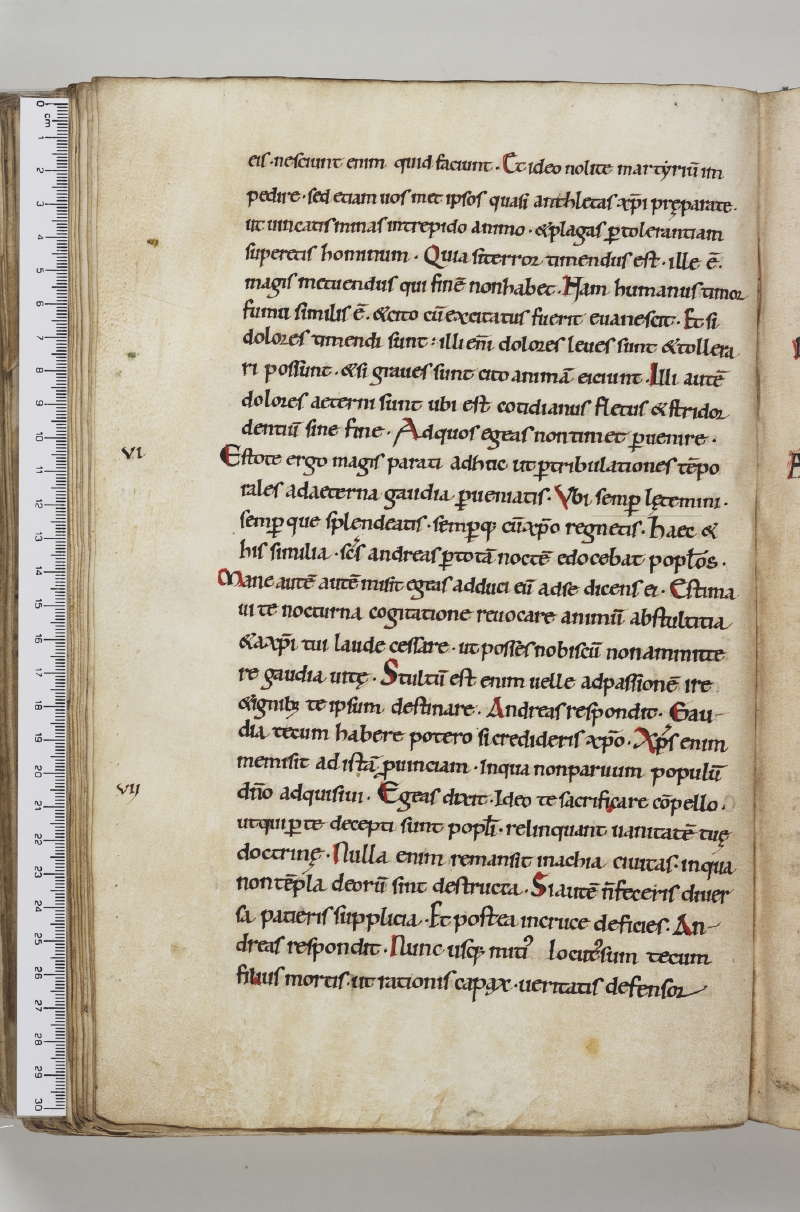 eis · nesciunt enim quid faciunt · Et ideo nolite martyriū im
pedire · sed etiam uos met ipsos quasi anthletas xp̄i pręparate ·
ut uincatis minas intrepido animo · & plagas ꝑ tolerantiam
superetis hominum · Quia si terror timendus est · ille ē ·
magis metuendus qui finē non habet · Nam humanus timor
fumu similis ē · & cito cū excitatus fuerit euanescit · Et si
dolores timendi sunt : illi eni dolores leues sunt & tollera
ri possunt · & si graues sunt cito animā eiciunt · Illi autē
dolores aeterni sunt ubi est cotidianus fletus & stridor
dentiū sine fine · Ad quos egeas non timet ꝑuenire ·
VI Estote ergo magis parati adhuc ut ꝑ tribulationes tēpo
rales ad aeterna gaudia ꝑueniatis · Vbi semꝑ lętemini ·
semꝑ que splendeatis · semꝑ qꝫ cū xp̄o regnetis · haec &
his similia · sc̄s andreas ꝑ totā noctē edocebat popl̄os ·
Mane autē autē misit egeas adduci eū ad se dicens ei · Estima
ui te nocturna cogitatione reuocare animū ab stultitia
& a xp̄i tui laude cessare · ut posses nobiscū non ammitte
re gaudia uitę · Stultū est enim uelle ad passionē ire
& ignibꝫ te ipsum destinare · Andreas respondit · Gau-
dia tecum habere potero si credideris xp̄o · Xp̄s enim
me misit ad istā ꝓuinciam · in qua non paruum populū
VII dn̄o adquisiui · Egeas dixit · Ideo te sacrificare cōpello ·
ut qui ꝑ te decepti sunt popl̄i · relinquant uanitatē tuę
doctrinę · Nulla enim remansit in achia ciuitas · in qua
non tēpla deorū sint destructa · Si autē n̄ feceris diuer
sa patieris supplicia · Et postea in cruce deficies · An-
dreas respondit · Nunc usqꝫ mitiꝰ locutꝰ sum tecum
filius mortis · ut rationis capax · ueritatis defensor